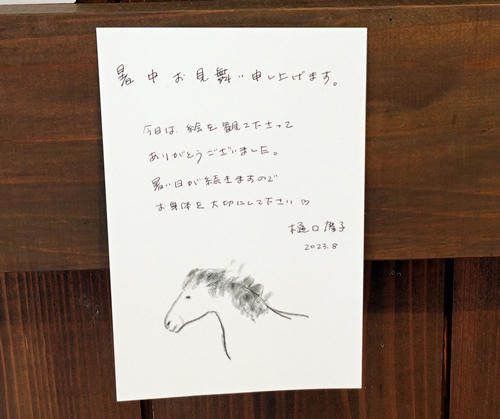 暑中お見舞い申し上げます。
今日は、絵を観て下さって
ありがとうございました。
暑い日が続きますので
お身体を大切にして下さい♡
樋口 子
2023.8